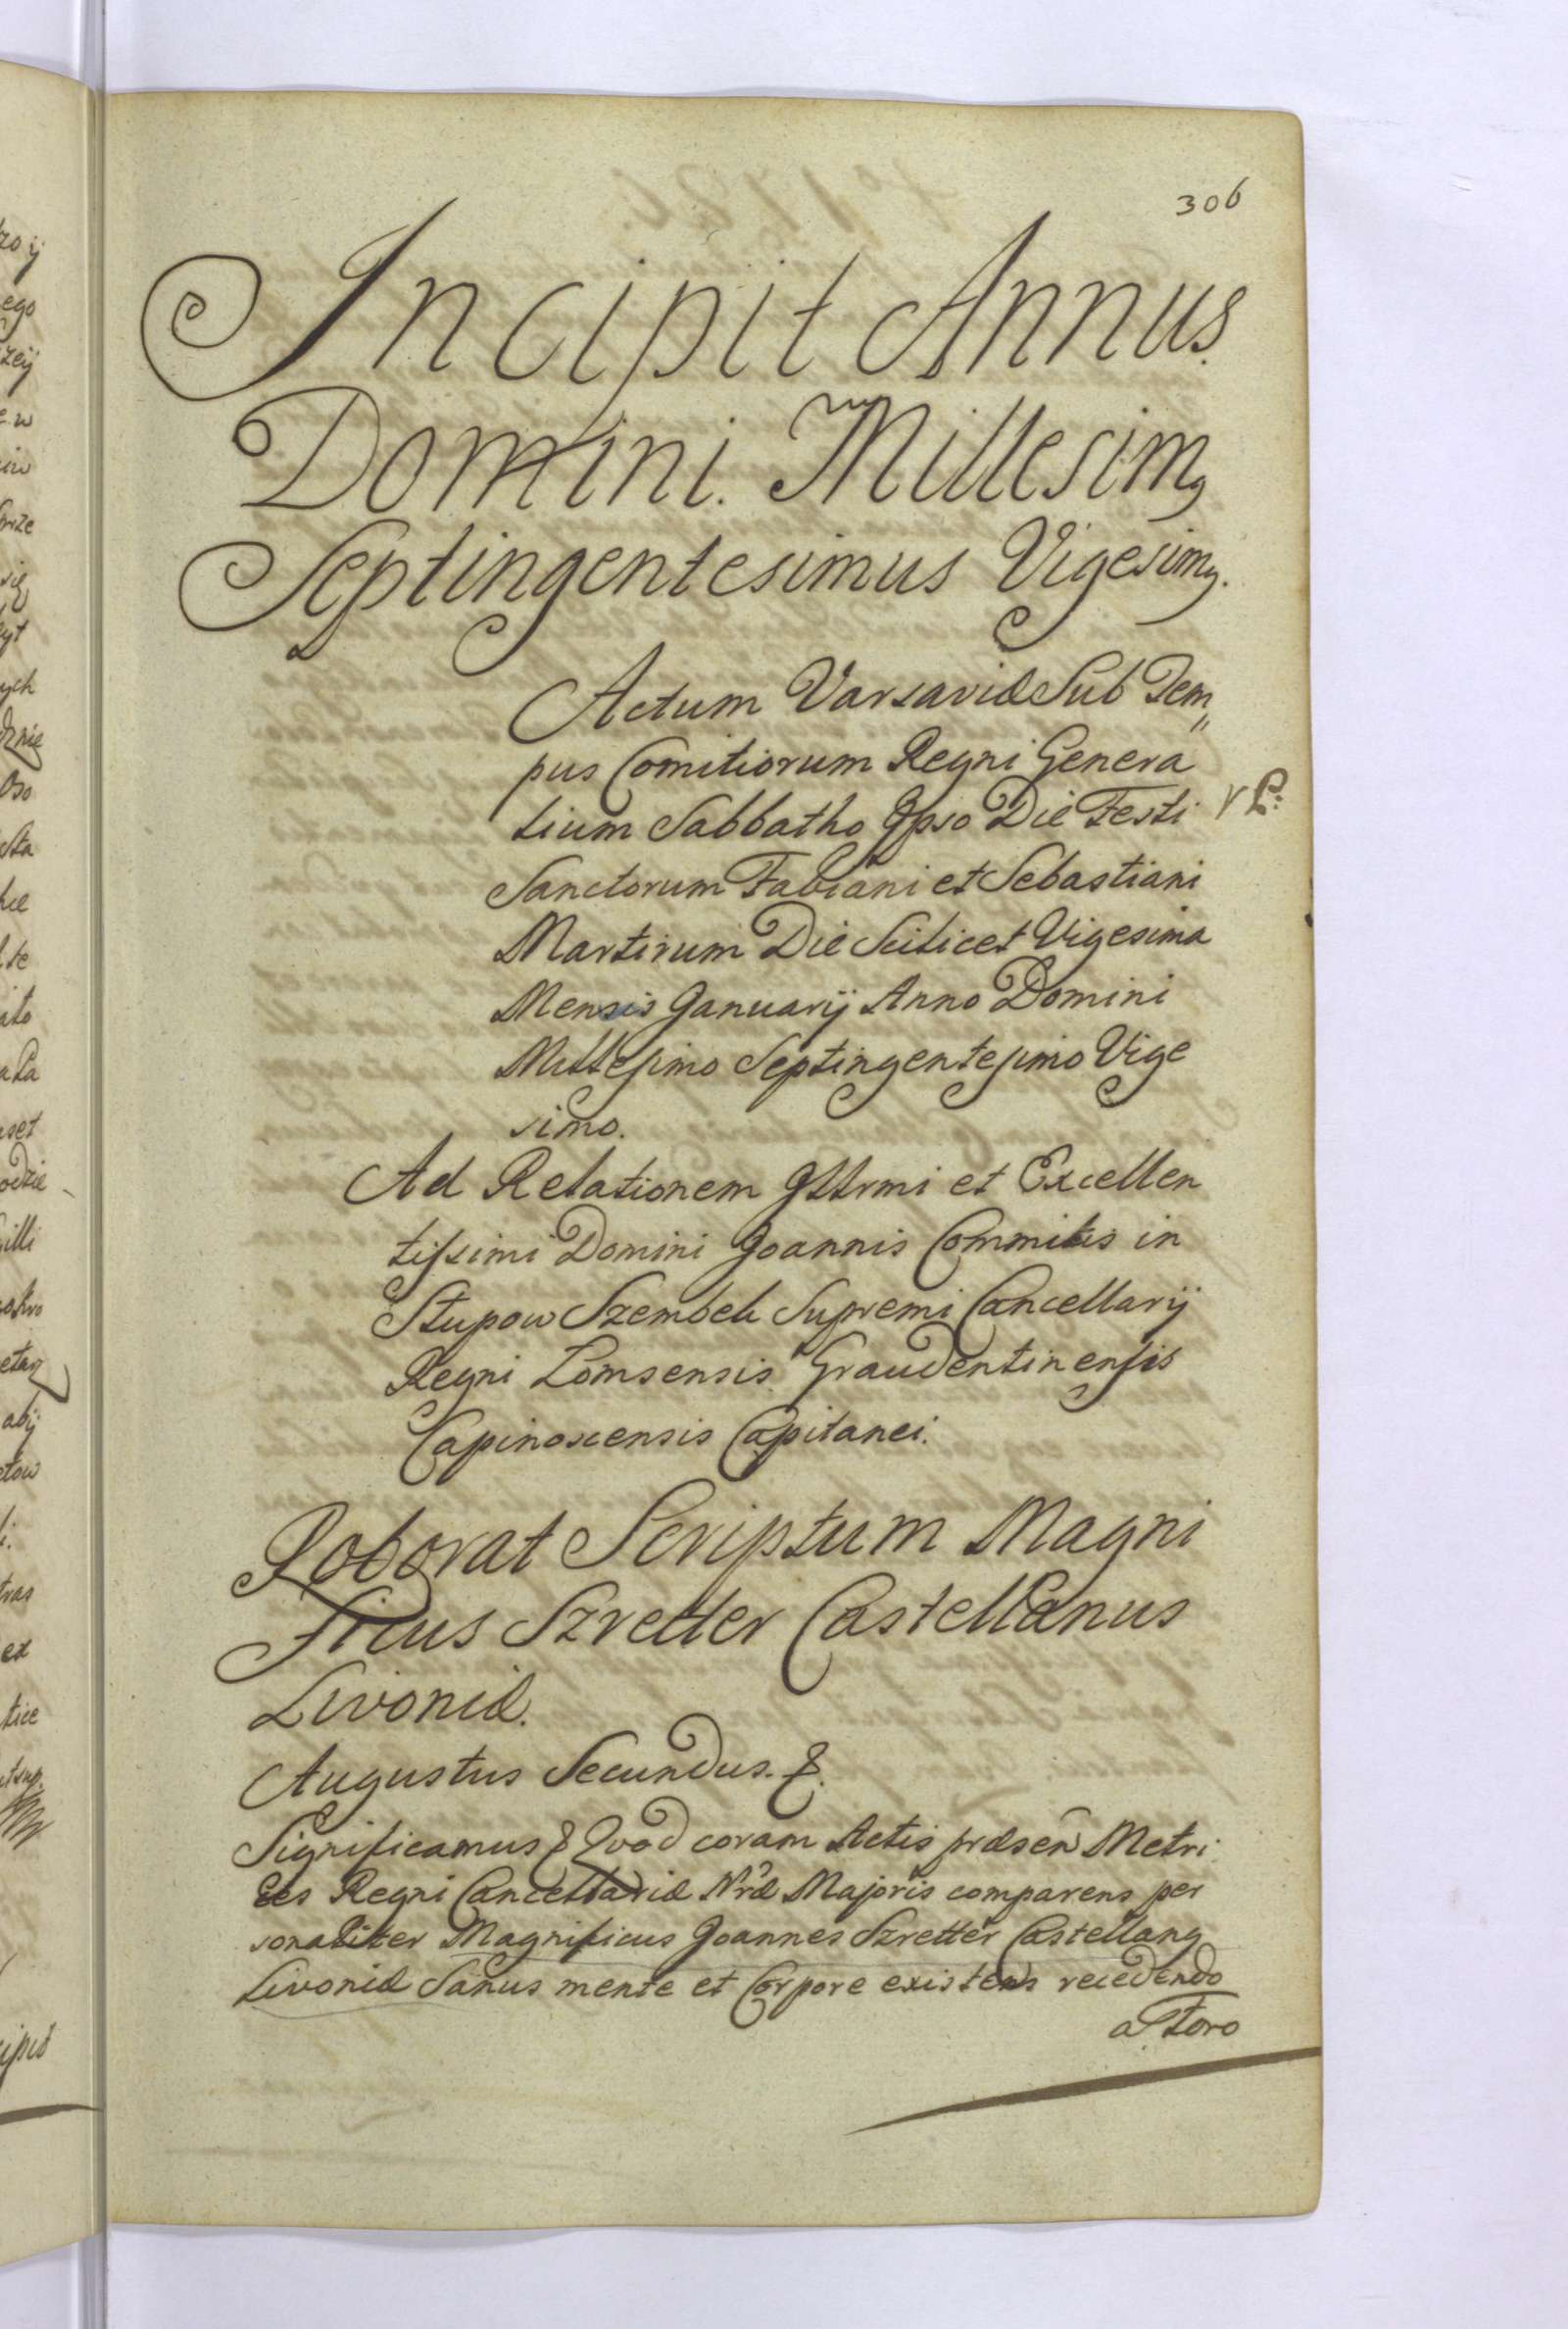 306
Incipit Annus.
Domini. Millesimꝯ
Septingentesimus Vigesimꝯ.
Actum Varsaviæ Sub Tem„
pus Comitiorum Regni Genera
lium Sabbatho Ipso Die Festi
Sanctorum Fabiani et Sebastiani
Martirum Die Scilicet Vigesima
Mensis Januarij Anno Domini
Millesimo Septingentesimo Vige
simo.
Ad Relationem Illrmi et Excellen
tissimi Domini Joannis Commitis in
Słupow Szembek Supremi Cancellarij
Regni Lomsensis Graudentinensis
Capinoscensis Capitanei.
Roborat Scriptum Magni
ficus Szretter Castellanus
Livoniæ.
Augustus Secundus. &.
Significamus & Quod coram Actis præsen̂ Metri
ces Regni Cancellariæ Nræ Majoris comparens per
sonaliter Magnificus Joannes Szretter Castellanꝯ
Livoniæ Sanus mente et Corpore existens recedendo
a Foro